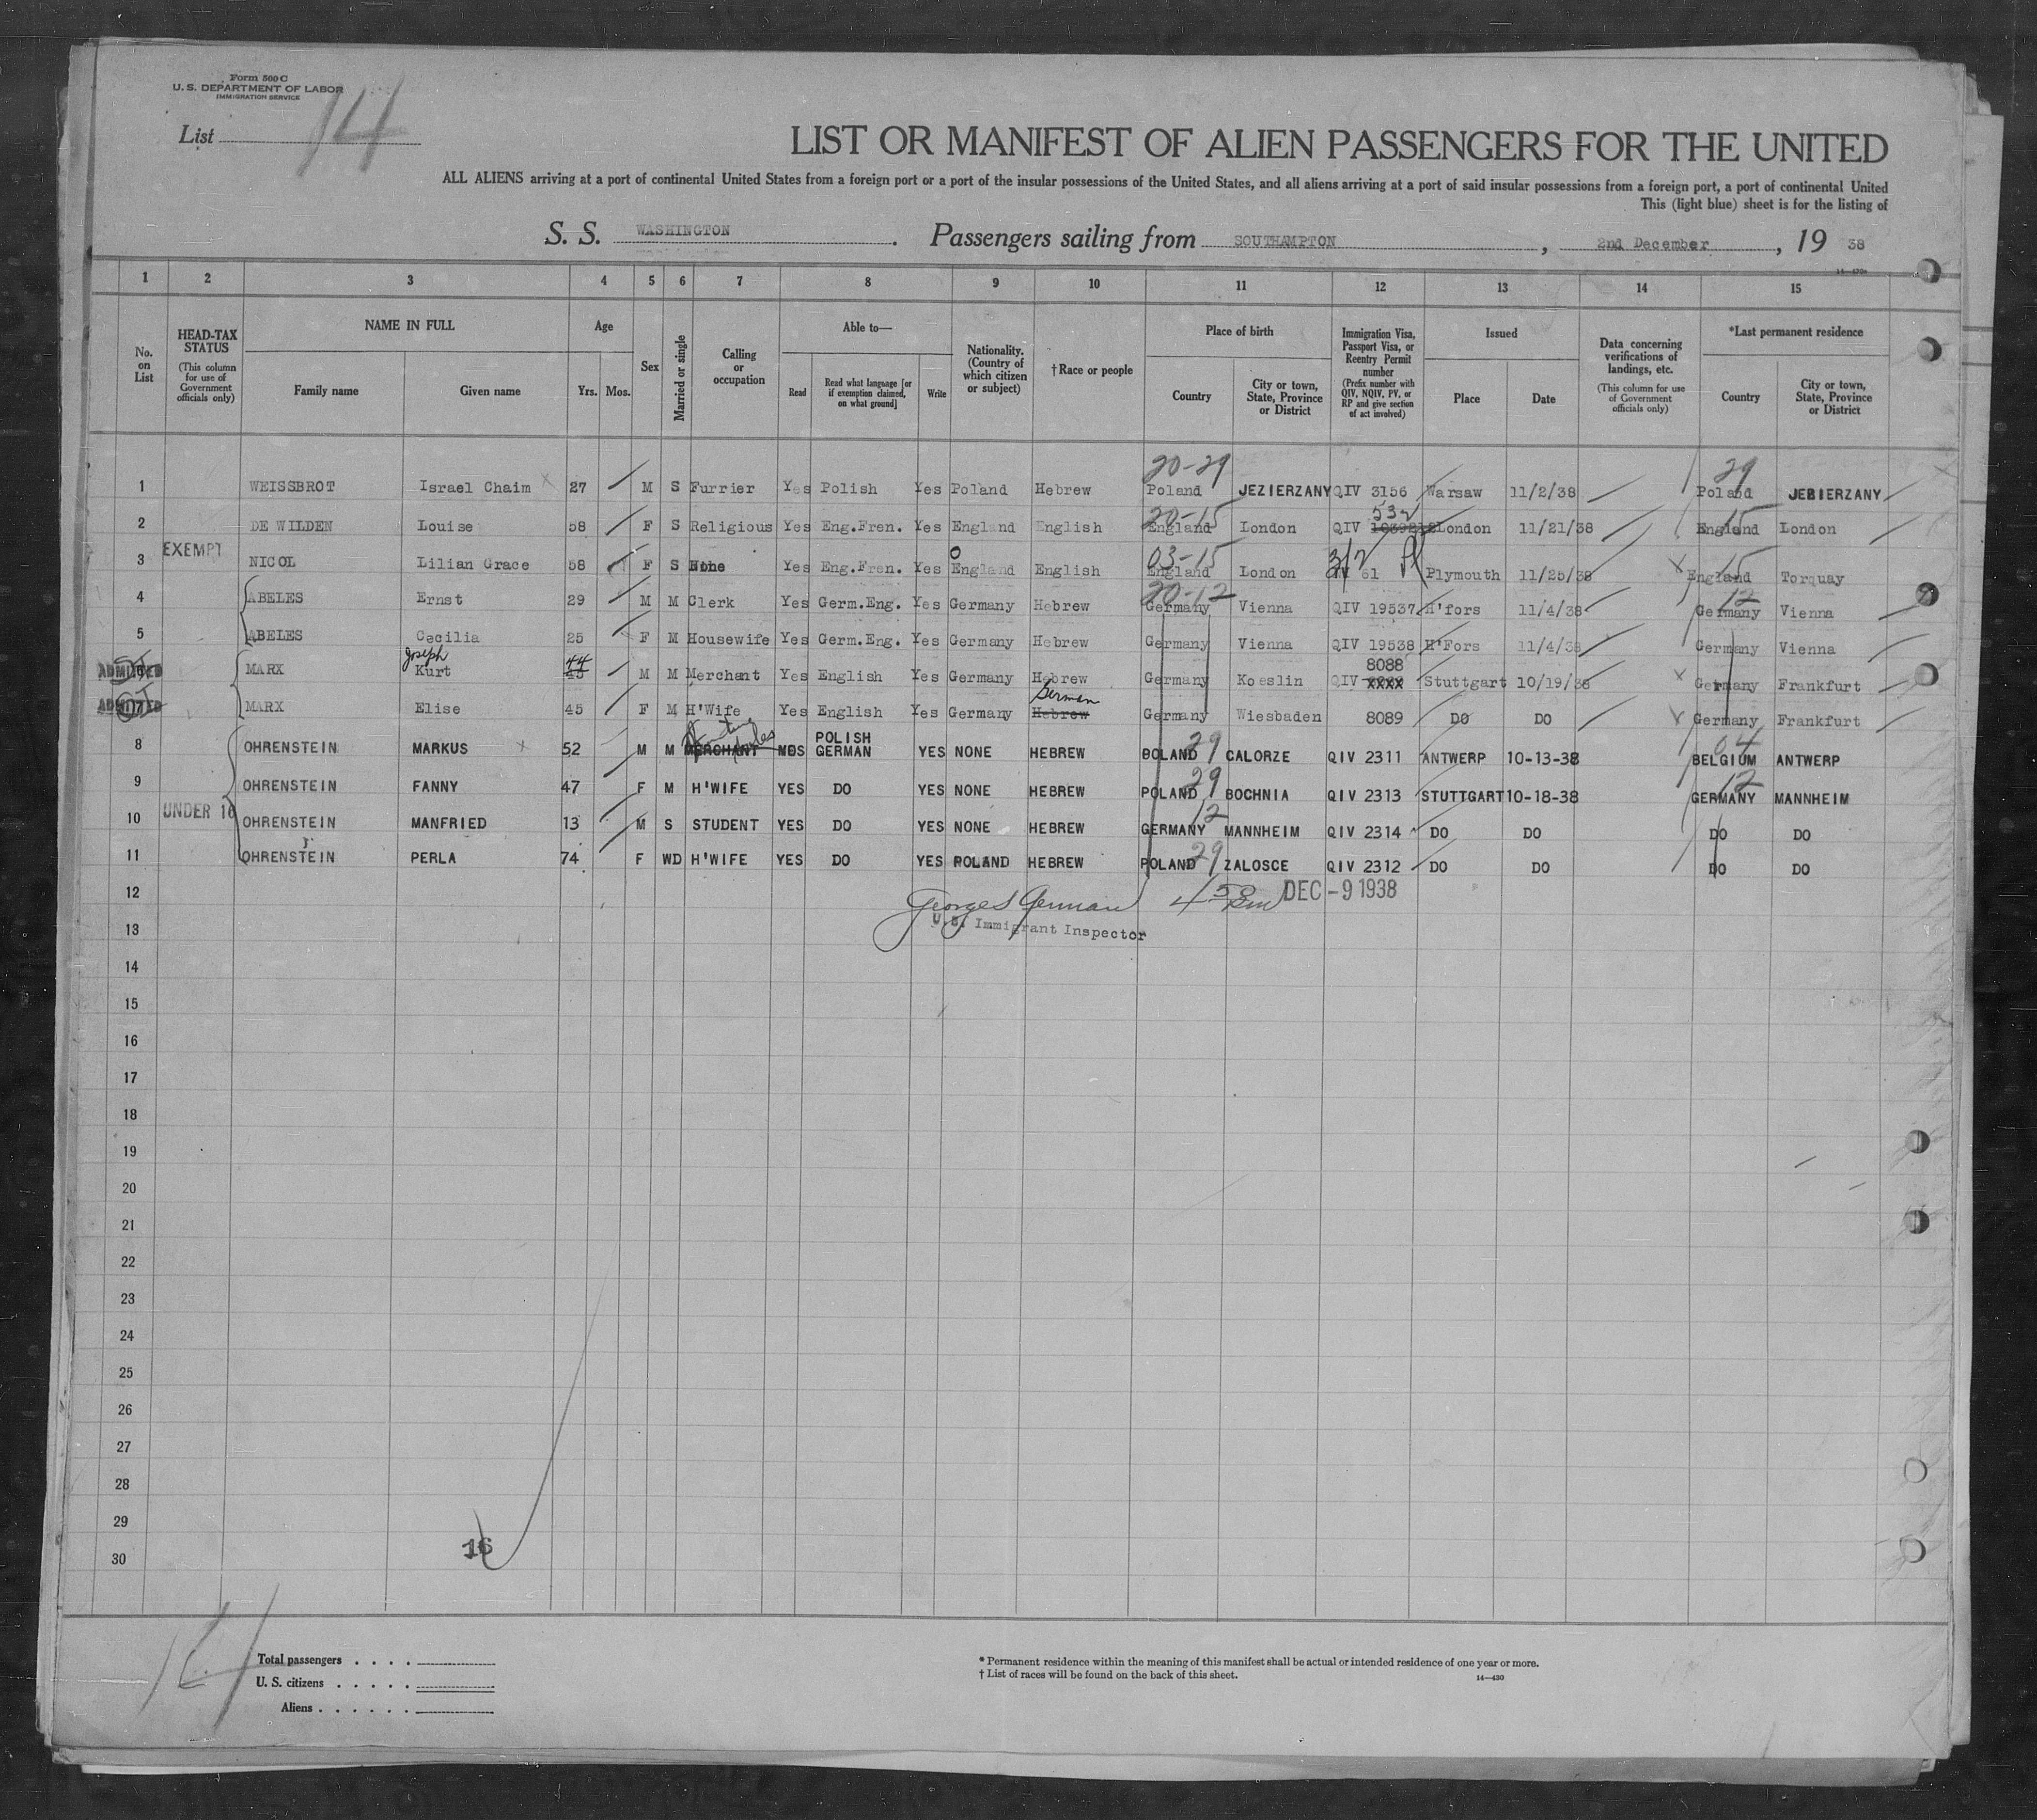 Form 500 C
U. S. DEPARTMENT OF LABOR
IMMIGRATION SERVICE
List 14
LIST OR MANIFEST OF ALIEN PASSENGERS FOR THE UNITED
ALL ALIENS arriving at a port of continental United States from a foreign port or a port of the insular possessions of the United States, and all aliens arriving at a port of said insular possessions from a foreign port, a port of continental United
This (light blue) sheet is for the listing of
S. S. WASHINGTON. Passengers sailing from SOUTHAMPTON, 2nd December, 19 38
14—430a
1 2 3 4 5 6 7 8 9 10 11 12 13 14 15
No. on List
HEAD-TAX STATUS (This column for use of Government officials only)
NAME IN FULL Family name Given name
Age Yrs. Mos.
Sex
Married or single
Calling or occupation
Able to— Read Read what language [or if exemption claimed, on what ground] Write
Nationality. (Country of which citizen or subject)
†Race or people
Place of birth Country City or town, State, Province or District
Immigration Visa, Passport Visa, or Reentry Permit number (Prefix number with QIV, NQIV, PV, or RP and give section of act involved)
Issued Place Date
Data concerning verifications of landings, etc. (This column for use of Government officials only)
*Last permanent residence Country City or town, State, Province or District
20-29 29
1 WEISSBROT Israel Chaim x 27 M S Furrier Yes Polish Yes Poland Hebrew Poland JEZIERZANY QIV 3156 Warsaw 11/2/38 Poland JEBIERZANY
20-15 532 15
2 DE WILDEN Louise 58 F S Religious Yes Eng.Fren. Yes England English England London QIV London 11/21/38 England London
EXEMPT 03-15 3/2 15
3 NICOL Lilian Grace 58 F S None Yes Eng.Fren. Yes England English England London 61 Plymouth 11/25/38 x England Torquay
20-12 12
4 ABELES Ernst 29 M M Clerk Yes Germ.Eng. Yes Germany Hebrew Germany Vienna QIV 19537 H'fors 11/4/38 Germany Vienna
5 ABELES Cecilia 25 F M Housewife Yes Germ.Eng. Yes Germany Hebrew Germany Vienna QIV 19538 H'Fors 11/4/38 Germany Vienna
Joseph 44 8088
ADMITTED MARX Kurt 45 M M Merchant Yes English Yes Germany Hebrew Germany Koeslin QIV xxxx Stuttgart 10/19/38 x Germany Frankfurt
German
ADMITTED MARX Elise 45 F M H'Wife Yes English Yes Germany Hebrew Germany Wiesbaden 8089 DO DO x Germany Frankfurt
POLISH 29 04
8 OHRENSTEIN MARKUS x 52 M M MERCHANT GERMAN YES NONE HEBREW POLAND CALORZE QIV 2311 ANTWERP 10-13-38 BELGIUM ANTWERP
29 12
9 OHRENSTEIN FANNY 47 F M H'WIFE YES DO YES NONE HEBREW POLAND BOCHNIA QIV 2313 STUTTGART 10-18-38 GERMANY MANNHEIM
UNDER 16 12
10 OHRENSTEIN MANFRIED 13 M S STUDENT YES DO YES NONE HEBREW GERMANY MANNHEIM QIV 2314 DO DO DO DO
29
11 OHRENSTEIN PERLA 74 F WD H'WIFE YES DO YES POLAND HEBREW POLAND ZALOSCE QIV 2312 DO DO DO DO
12 George German 4 50 Pm DEC -9 1938
13 U.S. Immigrant Inspector
14
15
16
17
18
19
20
21
22
23
24
25
26
27
28
29
30
16
14
Total passengers . . . .
U. S. citizens . . . . .
Aliens . . . . . .
* Permanent residence within the meaning of this manifest shall be actual or intended residence of one year or more.
† List of races will be found on the back of this sheet.
14—430